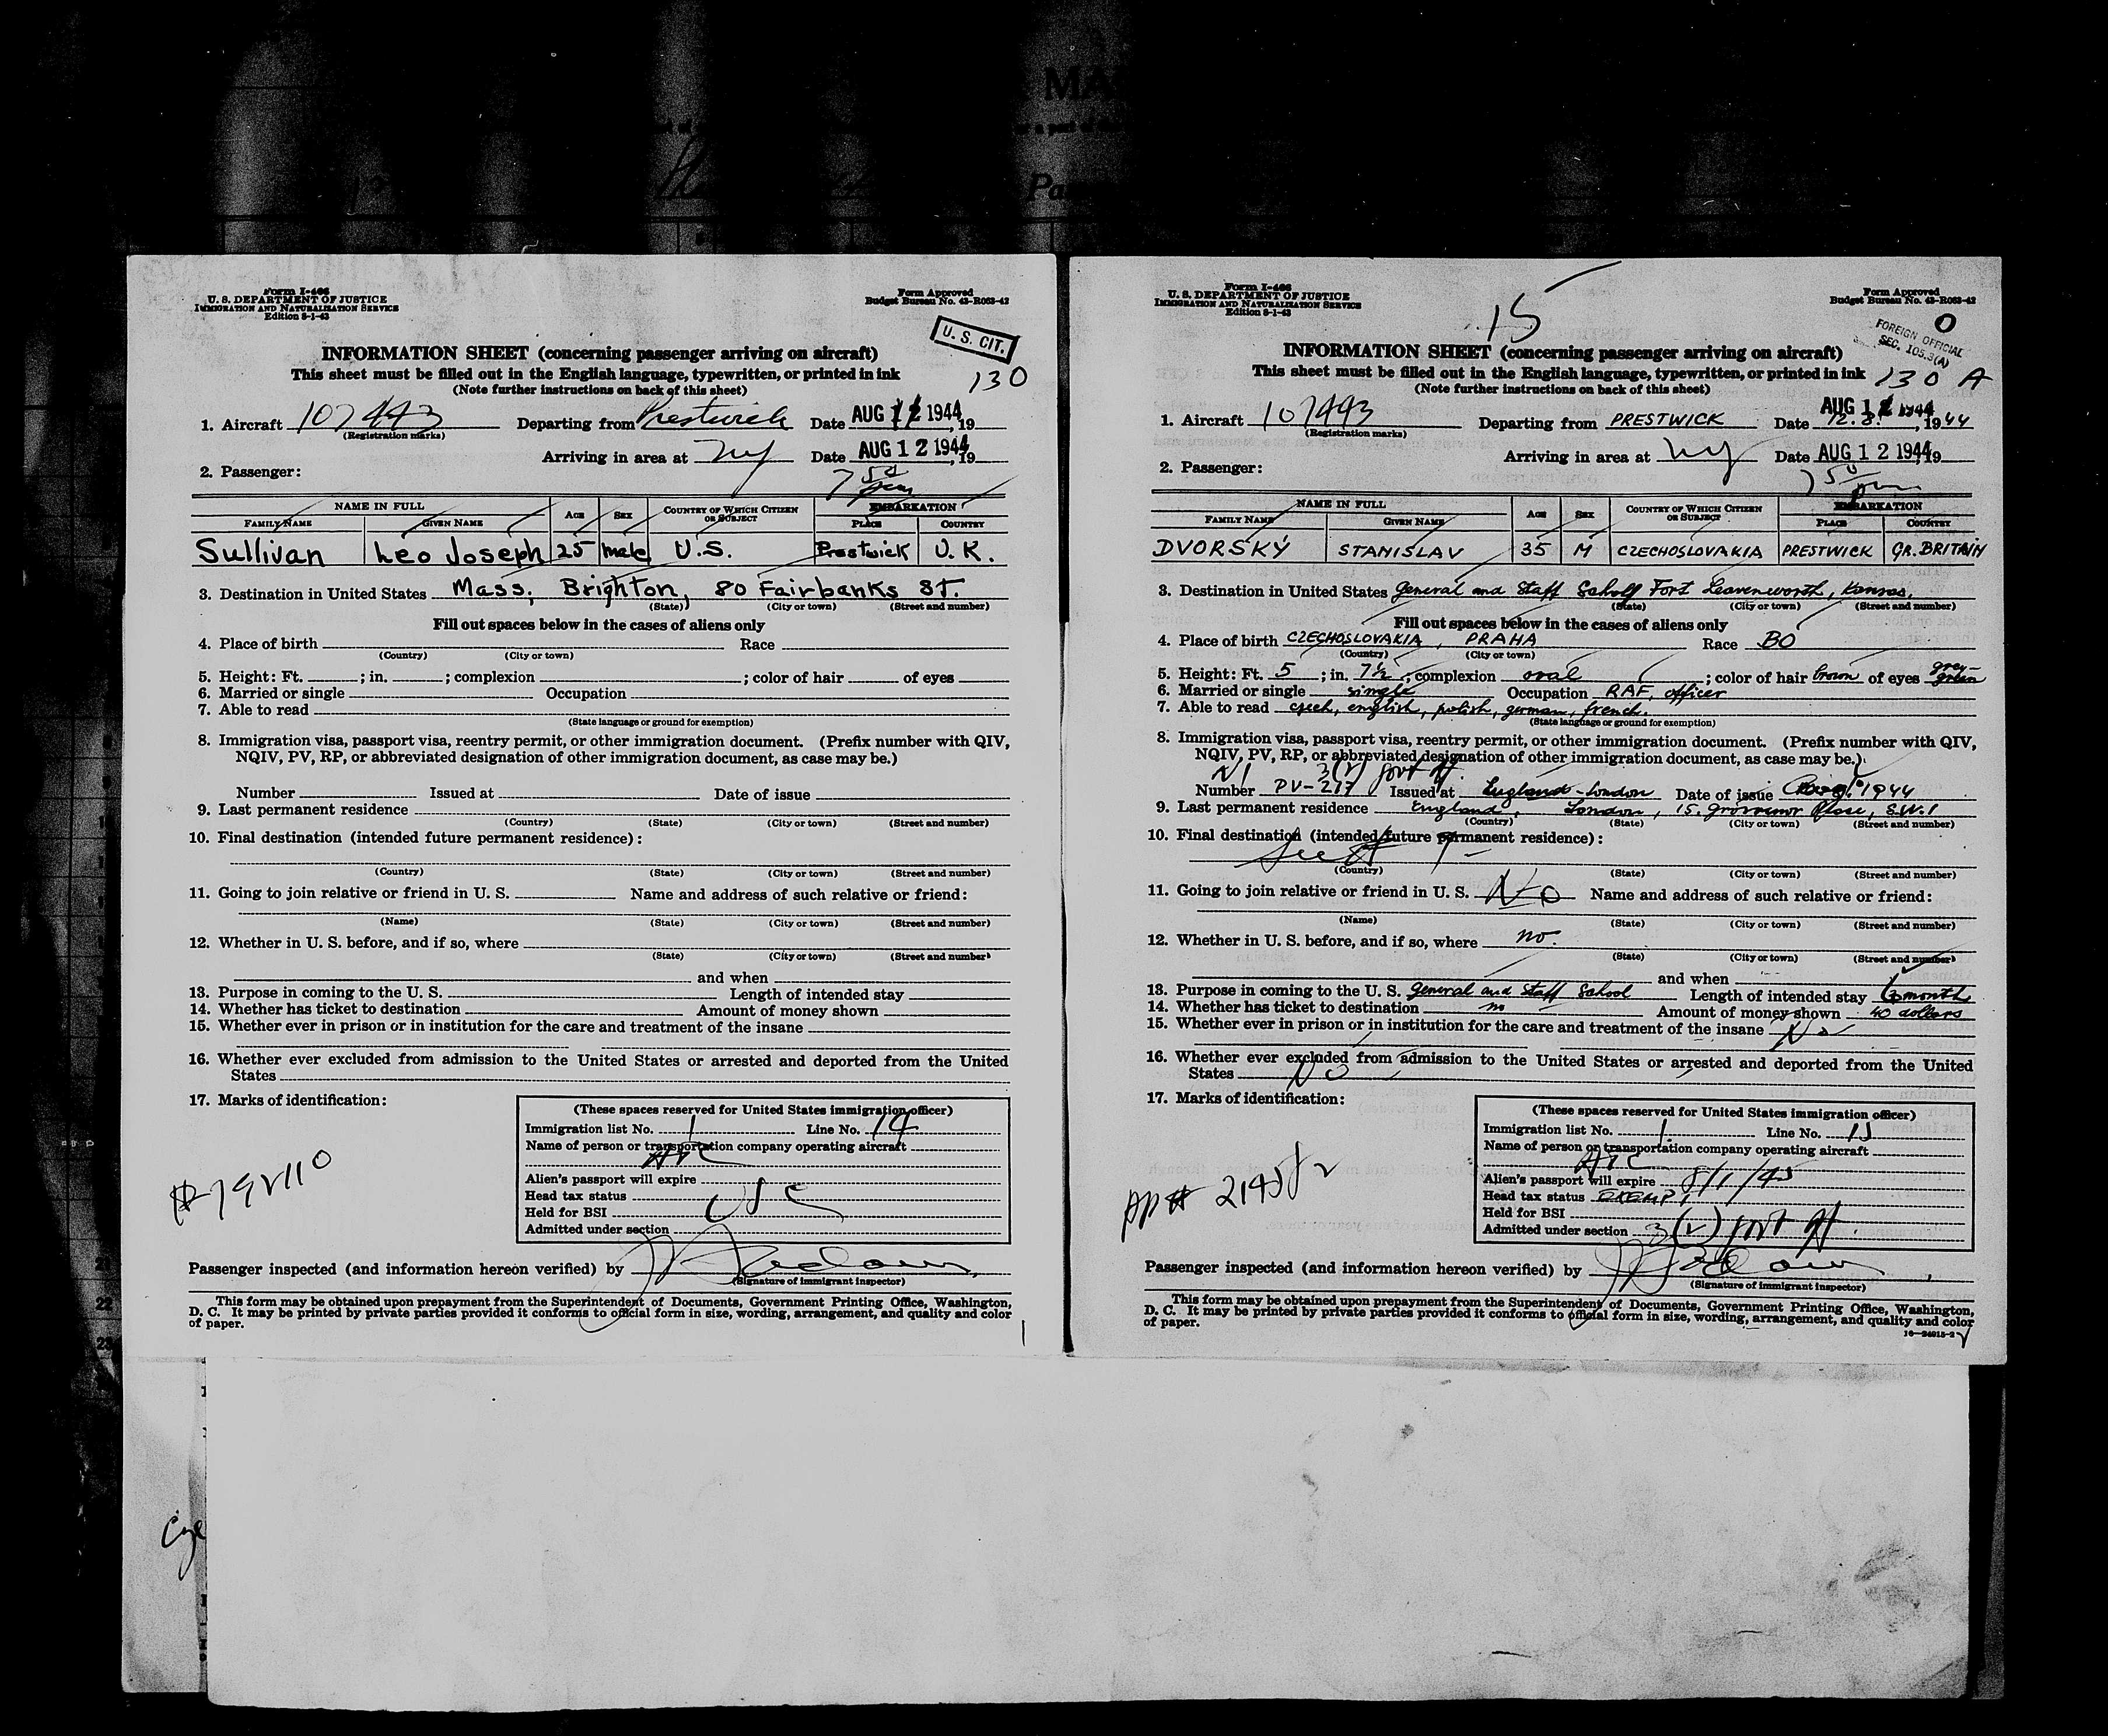 MA
Pa
Form I-466
U. S. DEPARTMENT OF JUSTICE
IMMIGRATION AND NATURALIZATION SERVICE
Edition 8-1-43
Form Approved
Budget Bureau No. 43-R063-42
U. S. CIT.
INFORMATION SHEET (concerning passenger arriving on aircraft)
This sheet must be filled out in the English language, typewritten, or printed in ink
130
(Note further instructions on back of this sheet)
1. Aircraft 107443 Departing from Prestwick Date AUG 12 1944, 19
(Registration marks)
Arriving in area at NY Date AUG 12 1944, 19
2. Passenger: 7 50 pm
NAME IN FULL AGE SEX COUNTRY OF WHICH CITIZEN OR SUBJECT EMBARKATION
FAMILY NAME GIVEN NAME PLACE COUNTRY
Sullivan Leo Joseph 25 Male U.S. Prestwick U.K.
3. Destination in United States Mass, Brighton, 80 Fairbanks ST.
(State) (City or town) (Street and number)
Fill out spaces below in the cases of aliens only
4. Place of birth Race
(Country) (City or town)
5. Height: Ft. ; in. ; complexion ; color of hair of eyes
6. Married or single Occupation
7. Able to read
(State language or ground for exemption)
8. Immigration visa, passport visa, reentry permit, or other immigration document. (Prefix number with QIV,
NQIV, PV, RP, or abbreviated designation of other immigration document, as case may be.)
Number Issued at Date of issue
9. Last permanent residence
(Country) (State) (City or town) (Street and number)
10. Final destination (intended future permanent residence):
(Country) (State) (City or town) (Street and number)
11. Going to join relative or friend in U. S. Name and address of such relative or friend:
(Name) (State) (City or town) (Street and number)
12. Whether in U. S. before, and if so, where
(State) (City or town) (Street and number)
and when
13. Purpose in coming to the U. S. Length of intended stay
14. Whether has ticket to destination Amount of money shown
15. Whether ever in prison or in institution for the care and treatment of the insane
16. Whether ever excluded from admission to the United States or arrested and deported from the United
States
17. Marks of identification:
(These spaces reserved for United States immigration officer)
Immigration list No. 1 Line No. 14
Name of person or transportation company operating aircraft
ATC
Alien's passport will expire
Head tax status USC
Held for BSI
Admitted under section
Passenger inspected (and information hereon verified) by
(Signature of immigrant inspector)
This form may be obtained upon prepayment from the Superintendent of Documents, Government Printing Office, Washington,
D. C. It may be printed by private parties provided it conforms to official form in size, wording, arrangement, and quality and color
of paper.
Form I-466
U. S. DEPARTMENT OF JUSTICE
IMMIGRATION AND NATURALIZATION SERVICE
Edition 8-1-43
15
Form Approved
Budget Bureau No. 43-R063-42
O
FOREIGN OFFICIAL
SEC. 105.3(A)
INFORMATION SHEET (concerning passenger arriving on aircraft)
This sheet must be filled out in the English language, typewritten, or printed in ink
130 A
(Note further instructions on back of this sheet)
AUG 12 1944
1. Aircraft 107443 Departing from PRESTWICK Date 12.8., 1944
(Registration marks)
Arriving in area at NY Date AUG 12 1944, 19
2. Passenger: 7 50 pm
NAME IN FULL AGE SEX COUNTRY OF WHICH CITIZEN OR SUBJECT EMBARKATION
FAMILY NAME GIVEN NAME PLACE COUNTRY
DVORSKÝ STANISLAV 35 M CZECHOSLOVAKIA PRESTWICK GR. BRITAIN
3. Destination in United States General and Staff School Fort Leavenworth, Kansas.
(State) (City or town) (Street and number)
Fill out spaces below in the cases of aliens only
4. Place of birth CZECHOSLOVAKIA, PRAHA Race BO
(Country) (City or town)
5. Height: Ft. 5 ; in. 7½ ; complexion oval ; color of hair brown of eyes grey-green
6. Married or single single Occupation RAF, officer
7. Able to read czech, english, polish, german, french.
(State language or ground for exemption)
8. Immigration visa, passport visa, reentry permit, or other immigration document. (Prefix number with QIV,
NQIV, PV, RP, or abbreviated designation of other immigration document, as case may be.)
Number PV-217 Issued at England-London Date of issue 1944
9. Last permanent residence England, London, 15. Grosvenor Place, S.W.1
(Country) (State) (City or town) (Street and number)
10. Final destination (intended future permanent residence):
(Country) (State) (City or town) (Street and number)
11. Going to join relative or friend in U. S. No Name and address of such relative or friend:
(Name) (State) (City or town) (Street and number)
12. Whether in U. S. before, and if so, where no.
(State) (City or town) (Street and number)
and when
13. Purpose in coming to the U. S. General and Staff School Length of intended stay 3 month
14. Whether has ticket to destination no Amount of money shown 40 dollars
15. Whether ever in prison or in institution for the care and treatment of the insane No
16. Whether ever excluded from admission to the United States or arrested and deported from the United
States NO
17. Marks of identification:
(These spaces reserved for United States immigration officer)
Immigration list No. 1 Line No. 15
Name of person or transportation company operating aircraft
ATC
Alien's passport will expire 8/1/45
Head tax status EXEMPT
Held for BSI
Admitted under section 3(1) govt off.
Passenger inspected (and information hereon verified) by
(Signature of immigrant inspector)
This form may be obtained upon prepayment from the Superintendent of Documents, Government Printing Office, Washington,
D. C. It may be printed by private parties provided it conforms to official form in size, wording, arrangement, and quality and color
of paper.
22
23